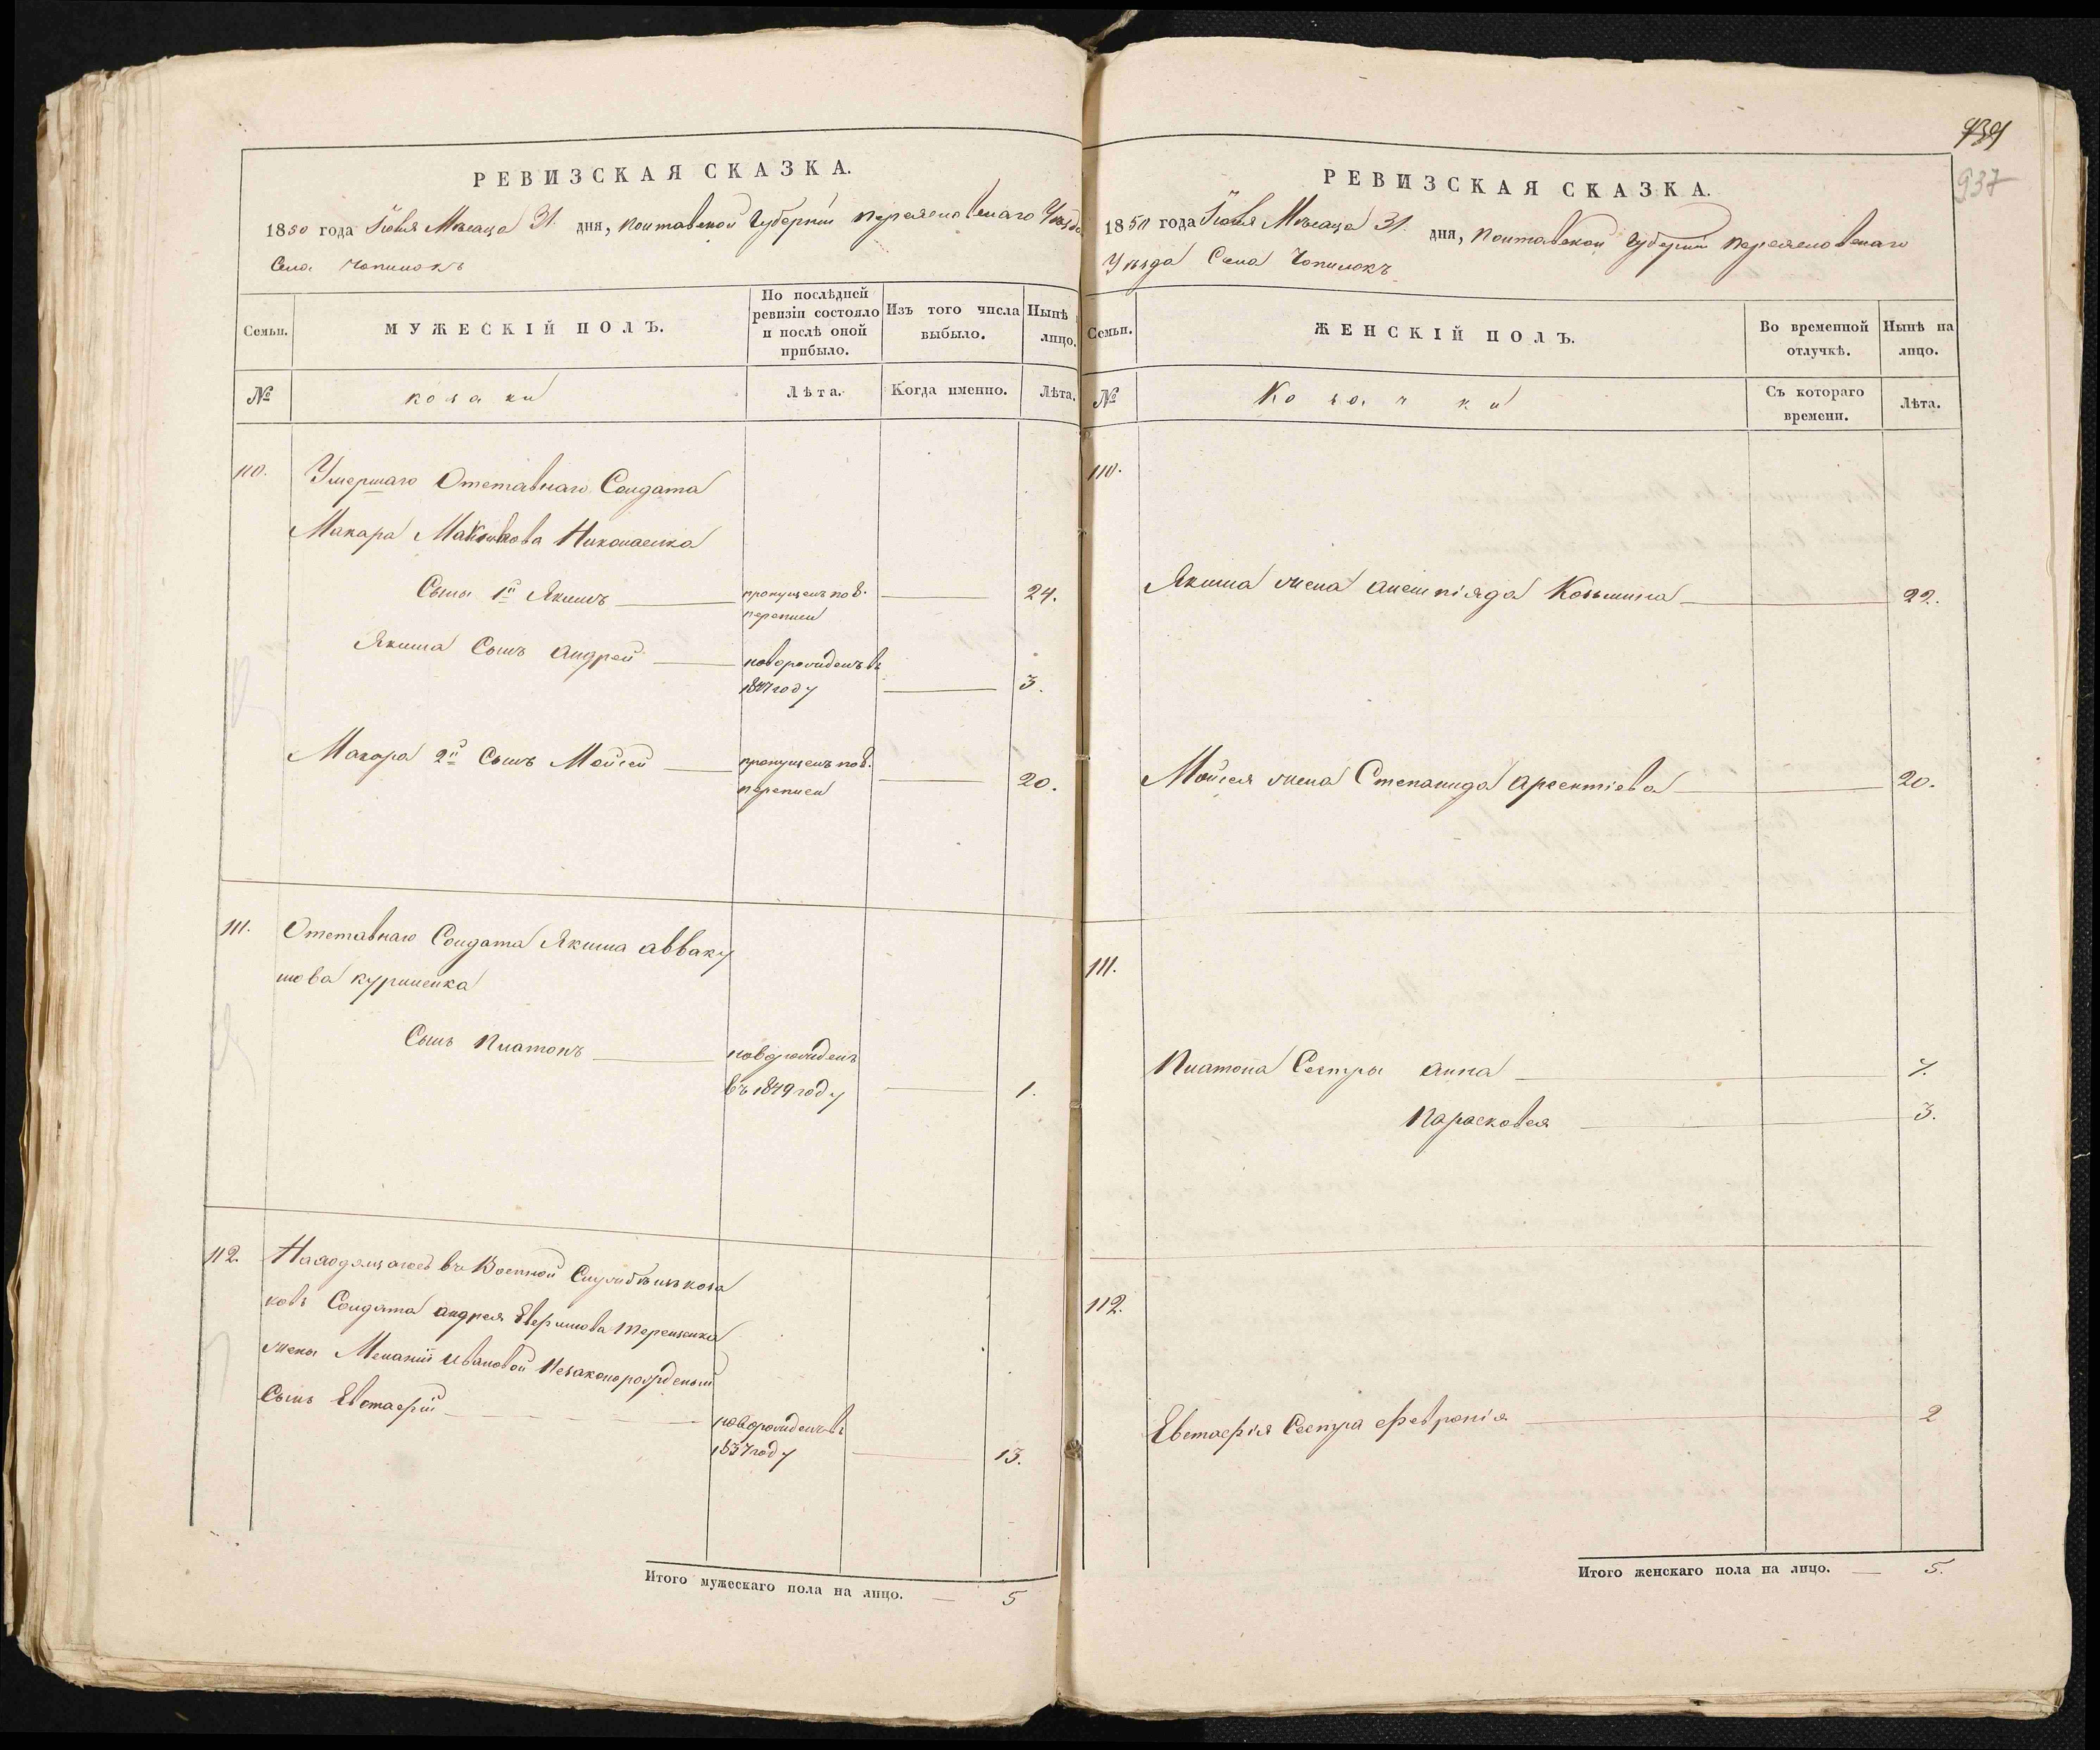 РЕВИЗСКАЯ СКАЗКА.
1850 года Июля Мѣсяца 31. дня, Полтавской Губерніи Переяславскаго Уѣзда
Села Чопилокъ
Семьи.
МУЖЕСКІЙ ПОЛЪ.
По послѣдней
ревизіи состояло
и послѣ оной
прибыло.
Изъ того числа
выбыло.
Нынѣ
лицо.
№
козаки
Лѣта.
Когда именно.
Лѣта.
110. Умершаго Отставнаго Солдата
Макара Николаенка
Сыны 1й Якимъ пропущенъ по 8.
переписи 24.
Якима Сынъ Андрей новорожденъ въ
1847 году 3.
Макара 2й Сынъ Мойсей пропущенъ по 8.
переписи 20.
111. Отставнаго Солдата Якима Авваку
мова Куриленка
Сынъ Платонъ новорожденъ
въ 1849 году 1.
112. Находящагося въ Военной Службѣ изъ коза
ковъ Солдата Андрея Терещенка
жены Меланіи Ивановой Незаконорожденый
Сынъ Евстафій новорожденъ въ
1837 году 13.
Итого мужескаго пола на лицо. — 5
939
937
РЕВИЗСКАЯ СКАЗКА.
1850 года Июля Мѣсяца 31. дня, Полтавской Губерніи Переяславскаго
Уѣзда Села Чопилокъ
Семьи.
ЖЕНСКІЙ ПОЛЪ.
Во временной
отлучкѣ.
Нынѣ на
лицо.
№
Козачки
Съ котораго
времени.
Лѣта.
110.
Якима жена Козьмина 22.
Мойсея жена Степанида Арсентіева 20.
111.
Платона Сестры Анна 7.
Парасковея 3.
112.
Евстафія Сестра Февронія 2
Итого женскаго пола на лицо. — 5.